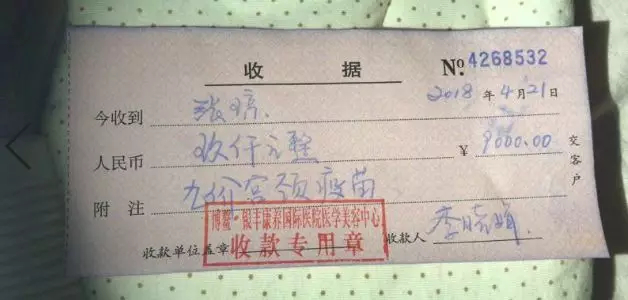 收 据 №4268532
2018 年 4 月 21 日
今收到 张
人民币 玖仟元整 ¥ 9000.00
附 注 九价宫颈疫苗
交客户
博鳌·银丰康养国际医院医学美容中心
收款专用章
收款单位盖章 收款人 李晓娟